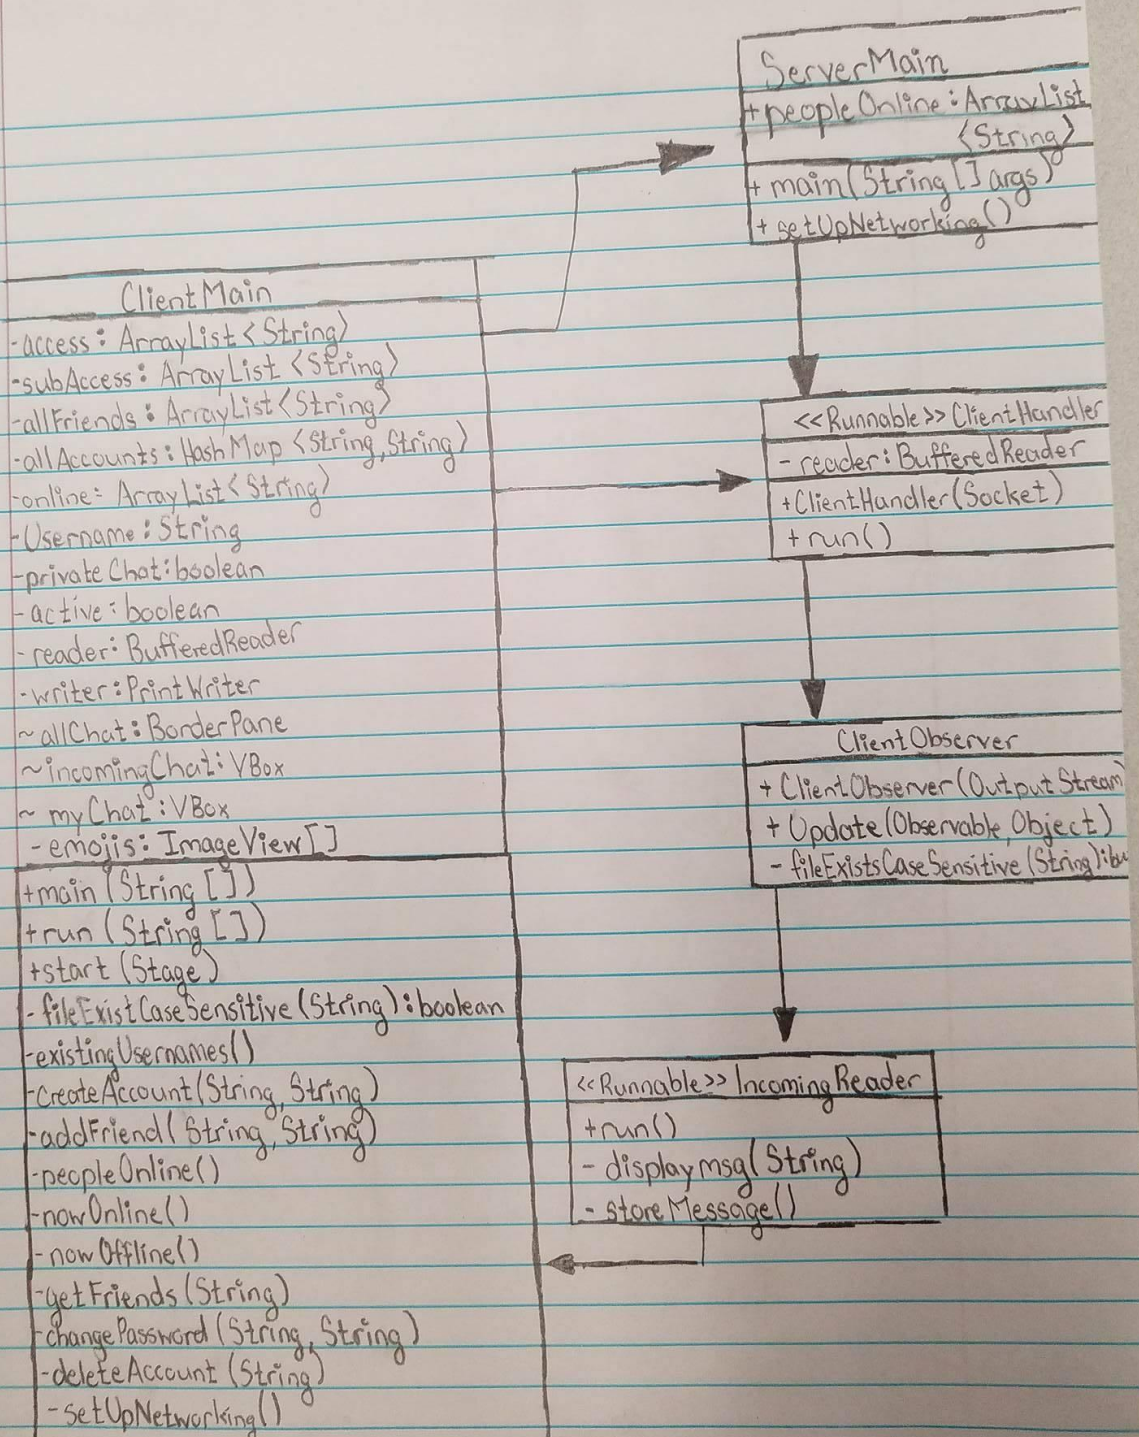 ServerMain
+peopleOnline: ArrayList
<String>
+ main(String[] args)
+ setUpNetworking()
ClientMain
-access: ArrayList <String>
-subAccess: ArrayList <String>
-allFriends: ArrayList<String>
-allAccounts: HashMap <String,String>
-online: ArrayList<String>
-Username: String
-privateChat: boolean
-active: boolean
-reader: BufferedReader
-writer: PrintWriter
~allChat: BorderPane
~incomingChat: VBox
~ myChat: VBox
-emojis: ImageView[]
+main (String [])
+run (String [])
+start (Stage)
- fileExistCaseSensitive (String): boolean
-existingUsernames()
-createAccount(String, String)
-addFriend( String, String)
-peopleOnline()
-nowOnline()
-nowOffline()
-getFriends(String)
-changePassword(String, String)
-deleteAccount (String)
-setUpNetworking()
<<Runnable>> ClientHandler
- reader: BufferedReader
+ClientHandler(Socket)
+run()
ClientObserver
+ ClientObserver(OutputStream)
+ Update(Observable, Object)
- fileExistsCaseSensitive (String):
<<Runnable>> IncomingReader
+run()
- displaymsg(String)
- storeMessage()